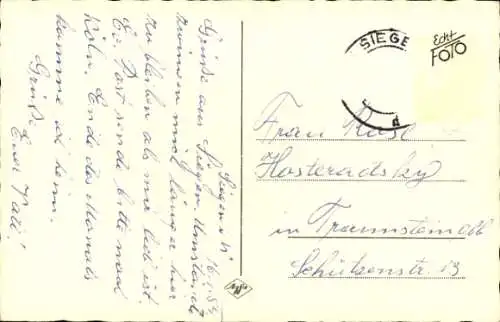 Siegen i. W.
16.1.54
Grüße aus Siegen. Umstände
zwingen mich länger hier
zu bleiben als mir lieb ist.
Ev. Post sende bitte nach
Köln. Ende des Monats
komme ich heim.
Grüße
Euer Vati!
SIEGE
Echt
FOTO
Frau Rosl
Kosteradsky
in Traunstein Obb
Schützenstr. 13
Agfa